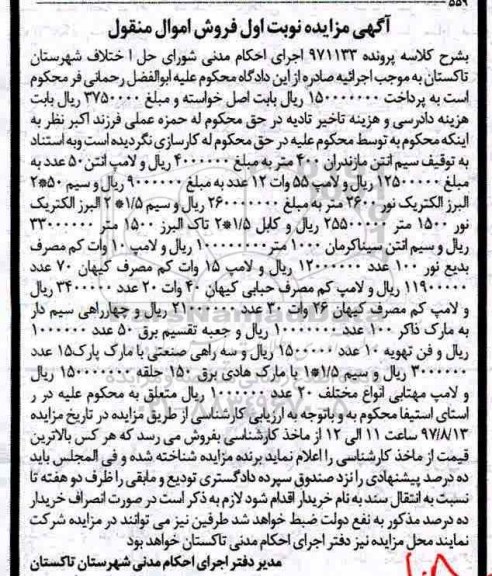 ۵۵۹
آگهی مزایده نوبت اول فروش اموال منقول
بشرح کلاسه پرونده ۹۷۱۱۳۳ اجرای احکام مدنی شورای حل ا ختلاف شهرستان
تاکستان به موجب اجرائیه صادره از این دادگاه محکوم علیه ابوالفضل رحمانی فر محکوم
است به پرداخت ۱۵۰۰۰۰۰۰۰ ریال بابت اصل خواسته و مبلغ ۳۷۵۰۰۰۰ ریال بابت
هزینه دادرسی و هزینه تاخیر تادیه در حق محکوم له حمزه عملی فرزند اکبر نظر به
اینکه محکوم به توسط محکوم علیه در حق محکوم له کارسازی نگردیده است وبه استناد
به توقیف سیم انتن مازندران ۴۰۰ متر به مبلغ ۴۰۰۰۰۰۰ ریال و لامپ انتن ۵۰ عدد به
مبلغ ۱۲۵۰۰۰۰۰ ریال و لامپ ۵۵ وات ۱۲ عدد به مبلغ ۹۰۰۰۰۰۰ ریال و سیم ۵۰*۲
البرز الکتریک نور ۳۶۰۰ متر به مبلغ ۲۶۰۰۰۰۰۰ ریال و سیم ۱/۵* ۲ البرز الکتریک
نور ۱۵۰۰ متر ۲۵۵۰۰۰۰۰ ریال و کابل ۱/۵*۲ تاک البرز ۱۵۰۰ متر ۳۳۰۰۰۰۰۰
ریال و سیم انتن سیناکرمان ۱۰۰۰ متر ۱۰۰۰۰۰۰۰ ریال و لامپ ۱۰ وات کم مصرف
بدیع نور ۱۰۰ عدد ۱۲۰۰۰۰۰۰ ریال و لامپ ۱۵ وات کم مصرف کیهان ۷۰ عدد
۱۱۹۰۰۰۰۰ ریال و لامپ کم مصرف حبابی کیهان ۴۰ وات ۲۰ عدد ۳۴۰۰۰۰۰ ریال
و لامپ کم مصرف کیهان ۲۶ وات ۳۰ عدد ریال و چهارراهی سیم دار
به مارک ذاکر ۱۰۰ عدد ۱۰۰۰۰۰۰۰ ریال و جعبه تقسیم برق ۵۰ عدد ۱۰۰۰۰۰۰
ریال و فن تهویه ۱۰ عدد ۱۵۰۰۰۰۰ ریال و سه راهی صنعتی با مارک پارک ۱۵ عدد
۳۰۰۰۰۰۰ ریال و سیم ۱/۵*۱ با مارک هادی برق ۱۵۰ حلقه ۱۵۰۰۰۰۰۰۰ ریال
و لامپ مهتابی انواع مختلف ۲۰ عدد ۱۰۰۰۰۰۰ ریال متعلق به محکوم علیه در ر
استای استیفا محکوم به و باتوجه به ارزیابی کارشناسی از طریق مزایده در تاریخ مزایده
۹۷/۸/۱۳ ساعت ۱۱ الی ۱۲ از ماخذ کارشناسی بفروش می رسد که هر کس بالاترین
قیمت از ماخذ کارشناسی را اعلام نماید برنده مزایده شناخته شده و فی المجلس باید
ده درصد پیشنهادی را نزد صندوق سپرده دادگستری تودیع و مابقی را ظرف دو هفته تا
نسبت به انتقال سند به نام خریدار اقدام شود لازم به ذکر است در صورت انصراف خریدار
ده درصد مذکور به نفع دولت ضبط خواهد شد طرفین نیز می توانند در مزایده شرکت
نمایند محل مزایده نیز دفتر اجرای احکام مدنی تاکستان خواهد بود
مدیر دفتر اجرای احکام مدنی شهرستان تاکستان